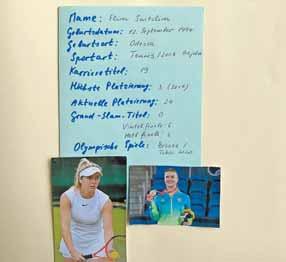 Name: Elina Switolina
Geburtsdatum: 12. September 1994
Geburtsort: Odessa
Sportart: Tennis
Karrieretitel: 19
Höchste Platzierung: 3
Aktuelle Platzierung: 24
Grand-Slam-Titel: 0
Viertelfinale: 6
Halbfinale: 2
Olympische Spiele: Bronze